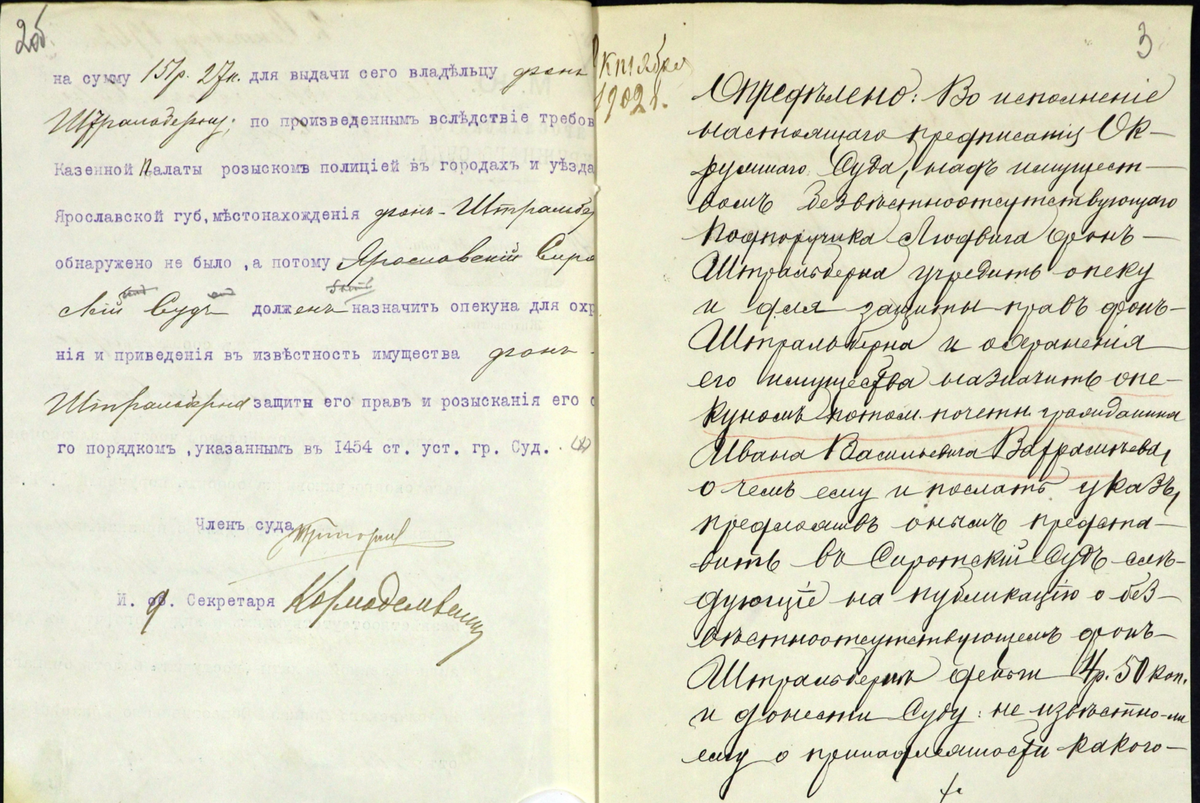 2об
на сумму 15р. 27к. для выдачи сего владѣльцу фонъ
Штральберну; по произведеннымъ вслѣдствіе требов
Казенной Палаты розыскомъ полиціей въ городахъ и уѣзда
Ярославской губ, мѣстонахожденія фонъ-Штральбе
обнаружено не было, а потому Ярославскій Сиро
скій Судъ долженъ назначить опекуна для охр
нія и приведенія въ извѣстность имущества фонъ-
Штральберна защиты его правъ и розысканія его с
го порядкомъ, указаннымъ въ 1454 ст. уст. гр. Суд.
Членъ суда
И. д. Секретаря
3
Октября
1902г.
Опредѣлено: Во исполненіе
настоящаго предписанія Ок-
ружнаго Суда, надъ имущест-
вомъ безвѣстноотсутствующаго
Подпоручика Людвига фонъ-
Штральберна учредить опеку
и для защиты правъ фонъ-
Штральберна и обереженія
его имущества назначить опе-
куномъ потом. почетн. гражданина
Ивана Васильевича Вахрамѣева,
о чемъ ему и послать указъ,
предложивъ онымъ предста-
вить въ Сиротскій Судъ слѣ-
дующіе на публикацію о без-
вѣстноотсутствующемъ фонъ-
Штральбернѣ деньги 4р. 50 коп.
и донести Суду: не извѣстно-ли
ему о принадлежности какого-